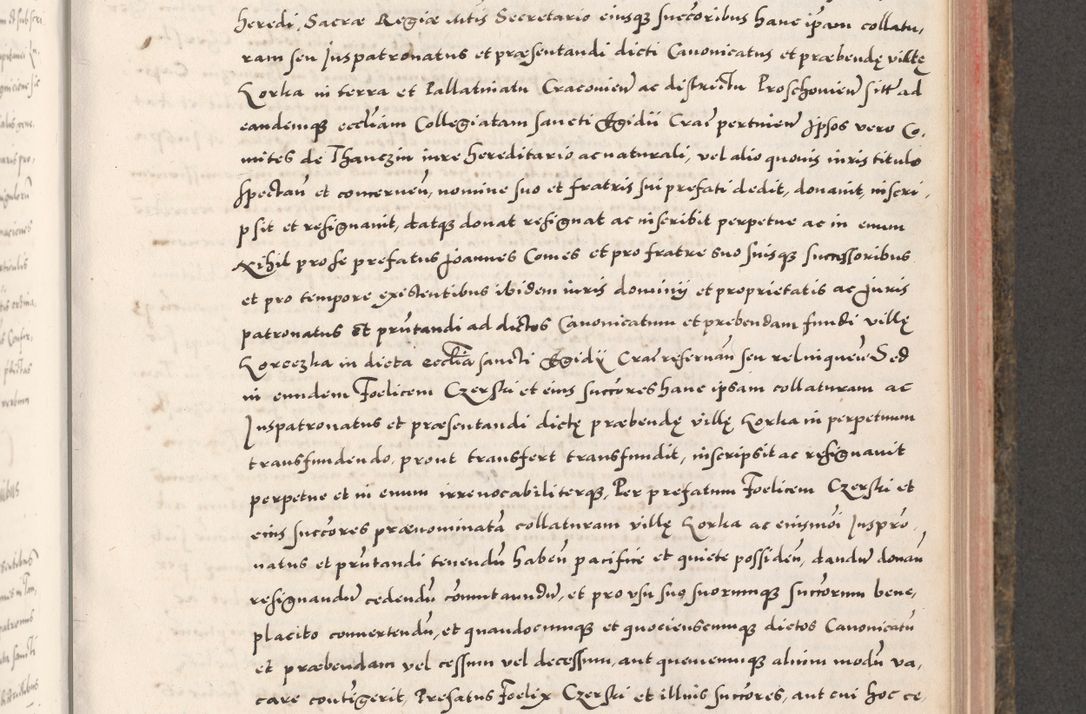 heredi, Sacræ Regiæ mtis Secretario eiusq succoribus hanc ipam collatu,
ram seu Juspatronatus et præsentandi dicti Canonicatus et præbendę villę
Korka in terra et Pallatinatu Cracovien ac districtu Proschovien sitt ad
eandemq eccliam Collegiatam sancti Egidii Crac pertinien Ipsos vero Co,
mites de Thanczin iure hereditario ac naturali, vel alio quovis iuris titulo
spectan et concernen, nomine suo et fratris sui prefati dedit, donavit, inscri,
psit et resignavit, datq donat resignat ac inscribit perpetue ac in evum
Nihil pro se prefatus Joannes Comes et pro fratre suo suisq successoribus
et pro tempore existentibus ibidem iuris dominij et proprietatis ac Juris
patronatus et pruntandi ad dictos Canonicatum et prebendam fundi villę
Korczka in dicta ecclia sancti Egidij Crac reservan seu relinquen Sed
in eundem Foelicem Czerski et eius succores hanc ipsam collaturam ac
Juspatronatus et præsentandi dictę præbendę villę Korka in perpetuum
transfundendo, prout transfert transfundit, inscripsit ac resignavit
perpetue et in evum irrevocabiliterq, Per prefatum Foelicem Czerski et
eius succores prænominatã collaturam villę Korka ac eiusmoi Juspro
natus et pruntandi tenendũ haben pacifice et quiete possiden, dandũ donan
resignandũ cedendũ comutaundũ, et pro usu suo suorumq succorum bene,
placito convertendũ, et quandocumq et quociescumq dictos Canonicatũ
et præbendam vel cessum vel decessum, aut quemcumq alium modũ va,
care contigerit, Prefatus Foelix Czerski et illius succores, aut cui hoc ce